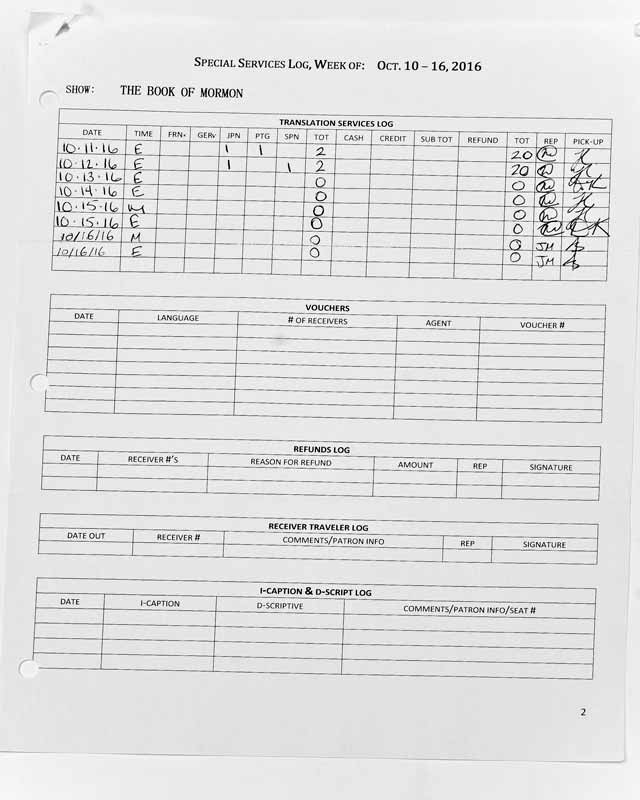 SPECIAL SERVICES LOG, WEEK OF: OCT. 10 – 16, 2016
SHOW: THE BOOK OF MORMON
TRANSLATION SERVICES LOG
DATE TIME FRN GER JPN PTG SPN TOT CASH CREDIT SUB TOT REFUND TOT REP PICK-UP
10·11·16 E 1 1 2 20
10·12·16 E 1 1 2 20
10·13·16 E 0 0
10·14·16 E 0 0
10·15·16 M 0 0
10·15·16 E 0 0
10/16/16 M 0 0 JM
10/16/16 E 0 0 JM
VOUCHERS
DATE LANGUAGE # OF RECEIVERS AGENT VOUCHER #
REFUNDS LOG
DATE RECEIVER #'S REASON FOR REFUND AMOUNT REP SIGNATURE
RECEIVER TRAVELER LOG
DATE OUT RECEIVER # COMMENTS/PATRON INFO REP SIGNATURE
I-CAPTION & D-SCRIPT LOG
DATE I-CAPTION D-SCRIPTIVE COMMENTS/PATRON INFO/SEAT #
2